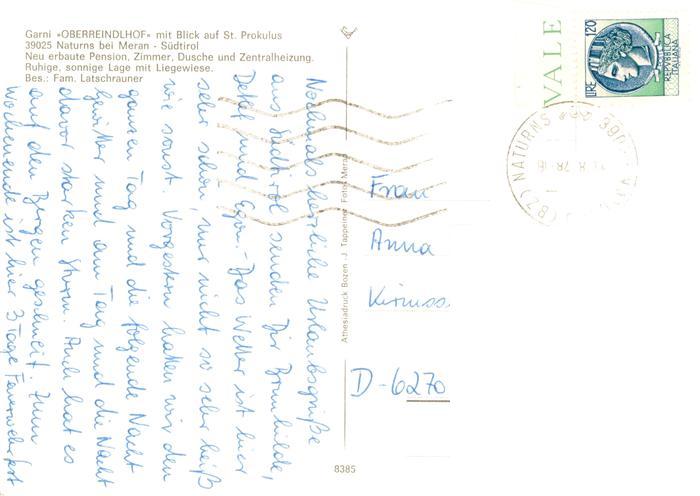 Garni «OBERREINDLHOF» mit Blick auf St. Prokulus
39025 Naturns bei Meran - Südtirol
Neu erbaute Pension, Zimmer, Dusche und Zentralheizung.
Ruhige, sonnige Lage mit Liegewiese.
Bes.: Fam. Latschrauner
Nochmals herzliche Urlaubsgrüße
aus Südtirol senden Dir Brunhilde,
Detlef und Egon. - Das Wetter ist hier
sehr schön, nur nicht so sehr heiß
wie sonst. Vorgestern hatten wir den
ganzen Tag und die folgende Nacht
Gewitter und am Tag und die Nacht
davor starken Sturm. Auch hat es
auf den Bergen geschneit. Zum
Wochenende ist hier 3 Tage Feuerwehrfest
Athesiadruck Bozen - J. Tappeiner, Foto, Meran
8385
Frau
Anna
D-6270
VALE
LIRE 120
REPVBBLICA
ITALIANA
NATURNS
(BZ)
390
8.78-16